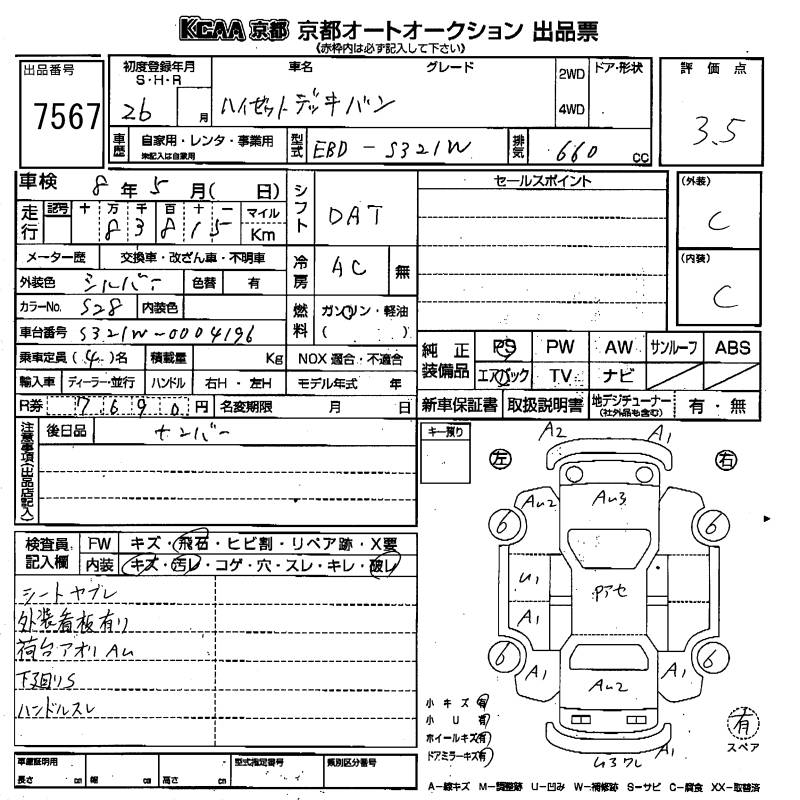 KCAA 京都 京都オートオークション 出品票
《赤枠内は必ず記入して下さい》
出品番号
7567
初度登録年月
S・H・R
26 月
車名 グレード
ハイゼットデッキバン
2WD
4WD
ドア・形状
評価点
3.5
車歴
自家用・レンタ・事業用
未記入は自家用
型式
EBD-S321W
排気
660 cc
車検 8年 5月( 日)
シフト
DAT
走行
記号 十 万 千 百 十 一
8 3 8 1 5
マイル
Km
メーター歴 交換車・改ざん車・不明車
冷房
AC 無
外装色 シルバー 色替 有
カラーNo. S28 内装色
燃料
ガソリン・軽油
( )
車台番号 S321W-0004196
乗車定員 (4)名 積載量 Kg NOX 適合・不適合
輸入車 ディーラー・並行 ハンドル 右H・左H モデル年式 年
R券 7690円 名変期限 月 日
セールスポイント
(外装)
C
(内装)
C
純正装備品
PS PW AW サンルーフ ABS
エアバック TV ナビ
新車保証書 取扱説明書 地デジチューナー
(社外品も含む)
有・無
注意事項(出品店記入)
後日品 ナンバー
キー預り
左 右
A2 A1
Au2 Au3
6 6
U1 Pアセ
A1
6 6
A1 Au2 A1
U3ワレ A1
検査員記入欄
FW キズ・飛石・ヒビ割・リペア跡・X要
内装 キズ・汚レ・コゲ・穴・スレ・キレ・破レ
シートヤブレ
外装看板有り
荷台アオリAu
下廻りS
ハンドルスレ
小キズ有
小U有
ホイールキズ有
ドアミラーキズ有
有
スペア
車庫証明用
長さ cm 幅 cm 高さ cm
型式指定番号 類別区分番号
A-線キズ M-調整跡 U-凹み W-補修跡 S-サビ C-腐食 XX-取替済